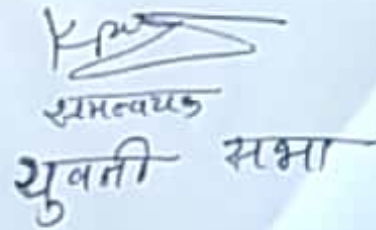 समन्वयक
युवती सभा